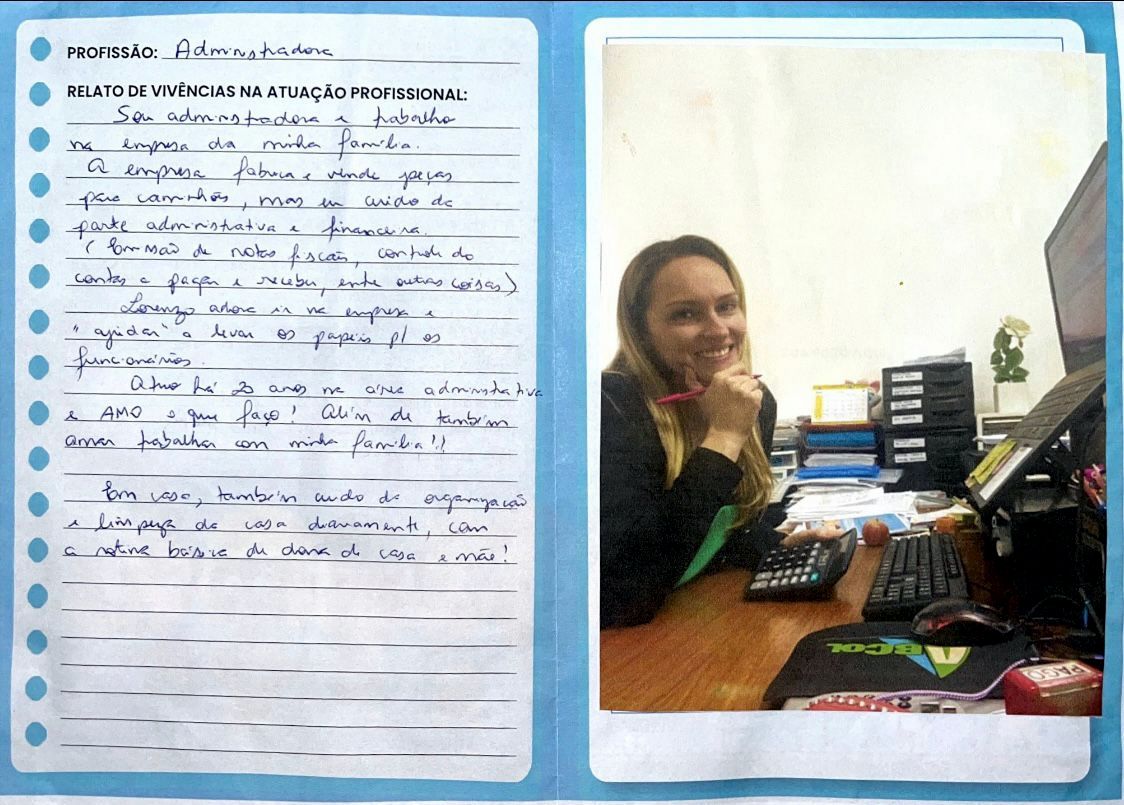 PROFISSÃO: Administradora
RELATO DE VIVÊNCIAS NA ATUAÇÃO PROFISSIONAL:
Sou administradora e trabalho
na empresa da minha família.
A empresa fabrica e vende peças
para caminhões, mas eu cuido da
parte administrativa e financeira.
(Emissão de notas fiscais, controle do
contas a pagar e receber, entre outras coisas)
Lorenzo adora ir na empresa e
"ajudar" a levar os papéis p/ os
funcionários.
Atuo há 20 anos na área administrativa
e AMO o que faço! Além de também
amar trabalhar com minha família!!
Em casa, também cuido da organização
e limpeza da casa diariamente, com
a rotina básica de dona de casa e mãe!
ABCOL
PAGO